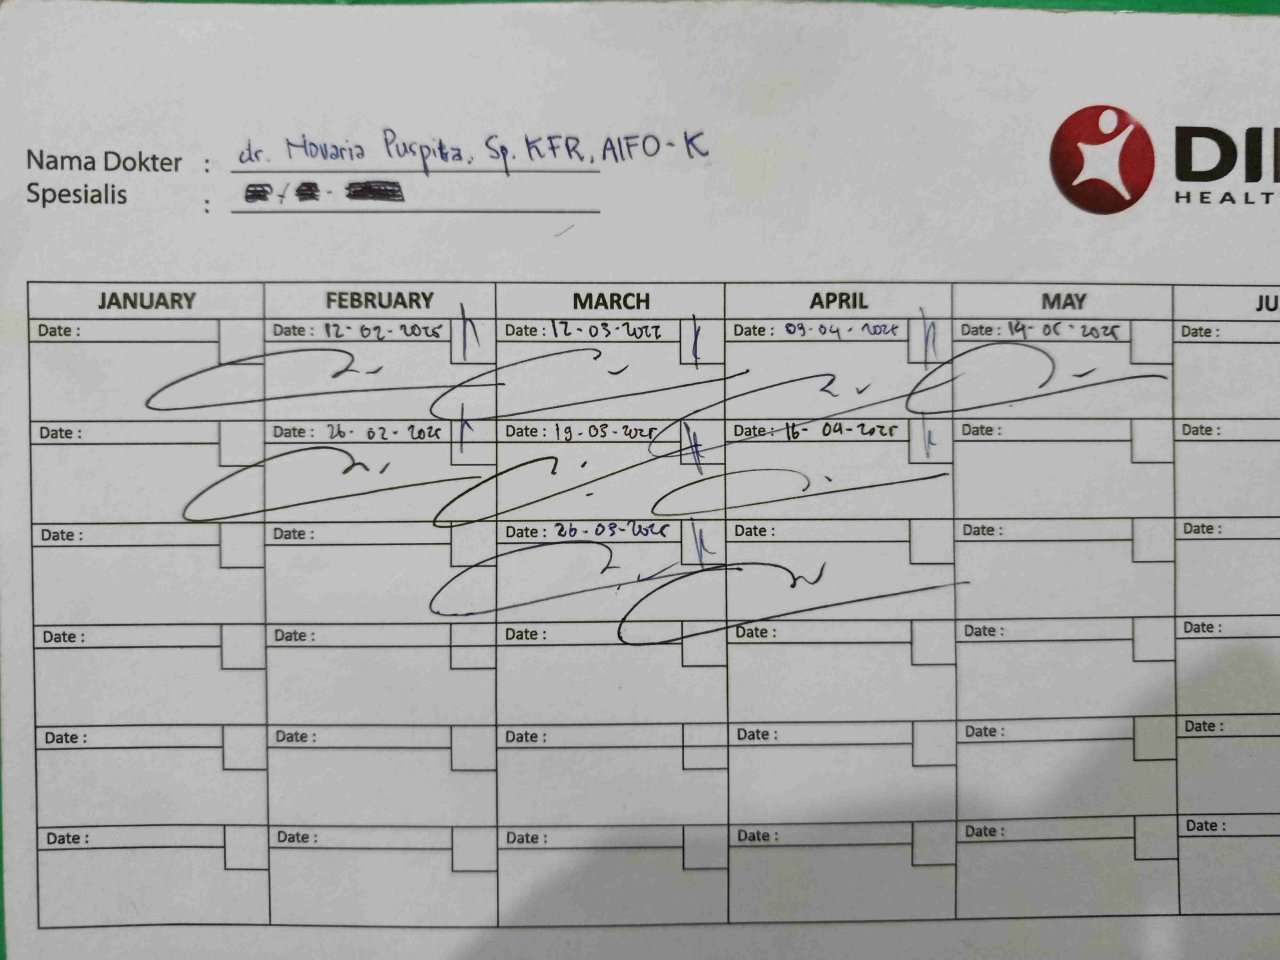 Nama Dokter : dr. Novaria Puspita, Sp. KFR, AIFO-K
Spesialis :
DI
HEALT
JANUARY FEBRUARY MARCH APRIL MAY JU
Date : Date : 12-02-2025 Date : 12-03-2025 Date : 09-04-2025 Date : 14-05-2025 Date :
Date : Date : 26-02-2025 Date : 19-03-2025 Date : 16-04-2025 Date : Date :
Date : Date : Date : 26-03-2025 Date : Date : Date :
Date : Date : Date : Date : Date : Date :
Date : Date : Date : Date : Date : Date :
Date : Date : Date : Date : Date : Date :